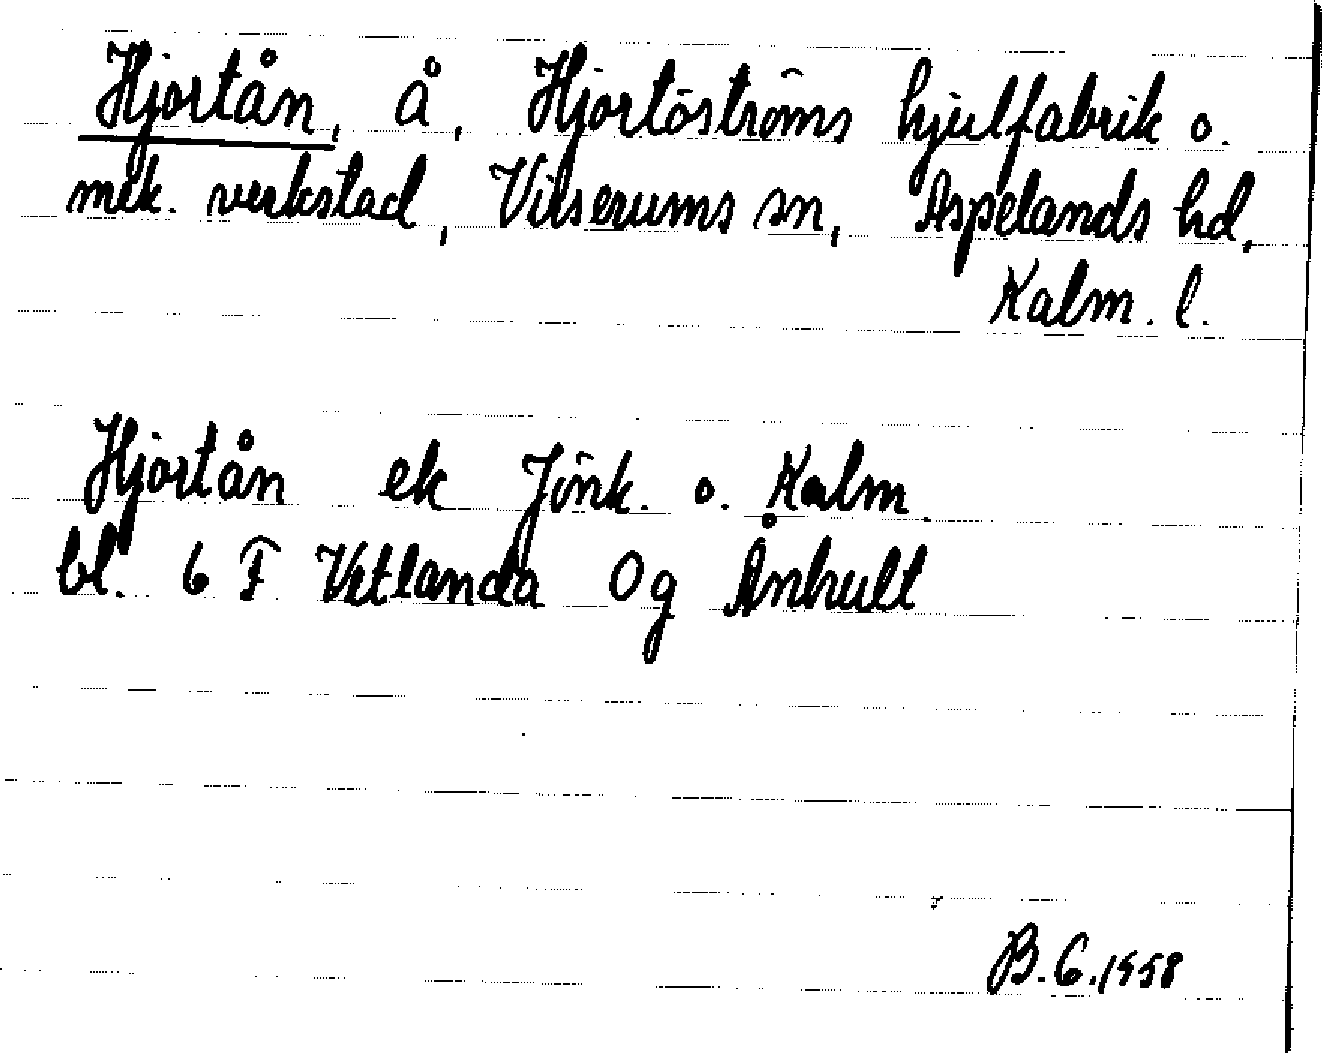 Hjortån, å, Hjortöströms hjulfabrik o.
mek. verkstad, Virserums sn, Aspelands hd,
Kalm. l.
Hjortån ek Jönk. o. Kalm.
bl. 6 F Vetlanda Og Ånhult
B.G. 1958